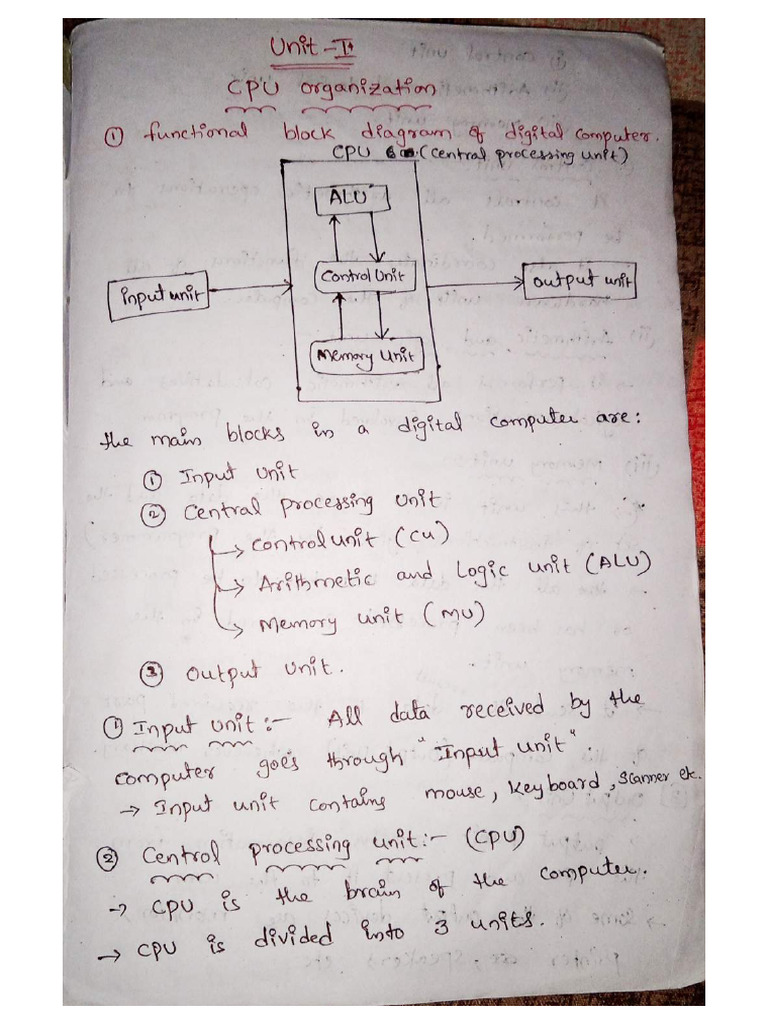 Unit - I
CPU organization
① functional block diagram of digital computer.
CPU (central processing unit)
ALU
Control Unit
Input unit
Output unit
Memory Unit
the main blocks in a digital computer are:
① Input Unit
② Central processing Unit
→ Control unit (CU)
→ Arithmetic and Logic unit (ALU)
→ Memory unit (MU)
③ Output Unit.
① Input unit :- All data received by the
computer goes through "Input unit".
→ Input unit contains mouse, keyboard, scanner etc.
② Central processing unit :- (CPU)
→ CPU is the brain of the computer.
→ CPU is divided into 3 units.